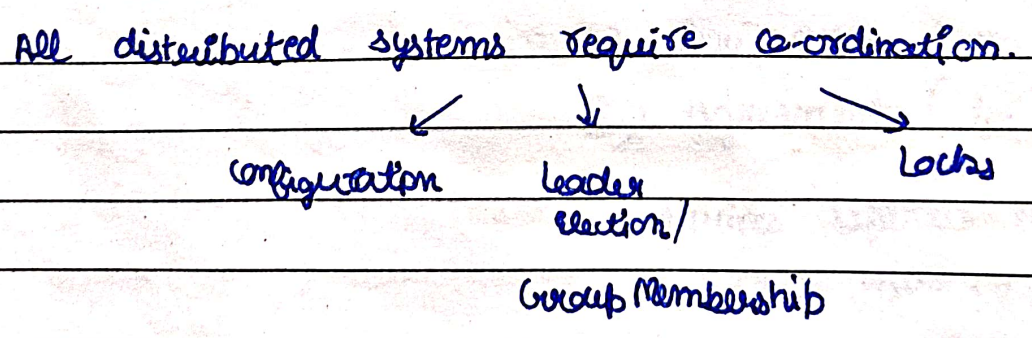 All distributed systems require co-ordination.
Configuration Leader Locks
Election/
Group Membership